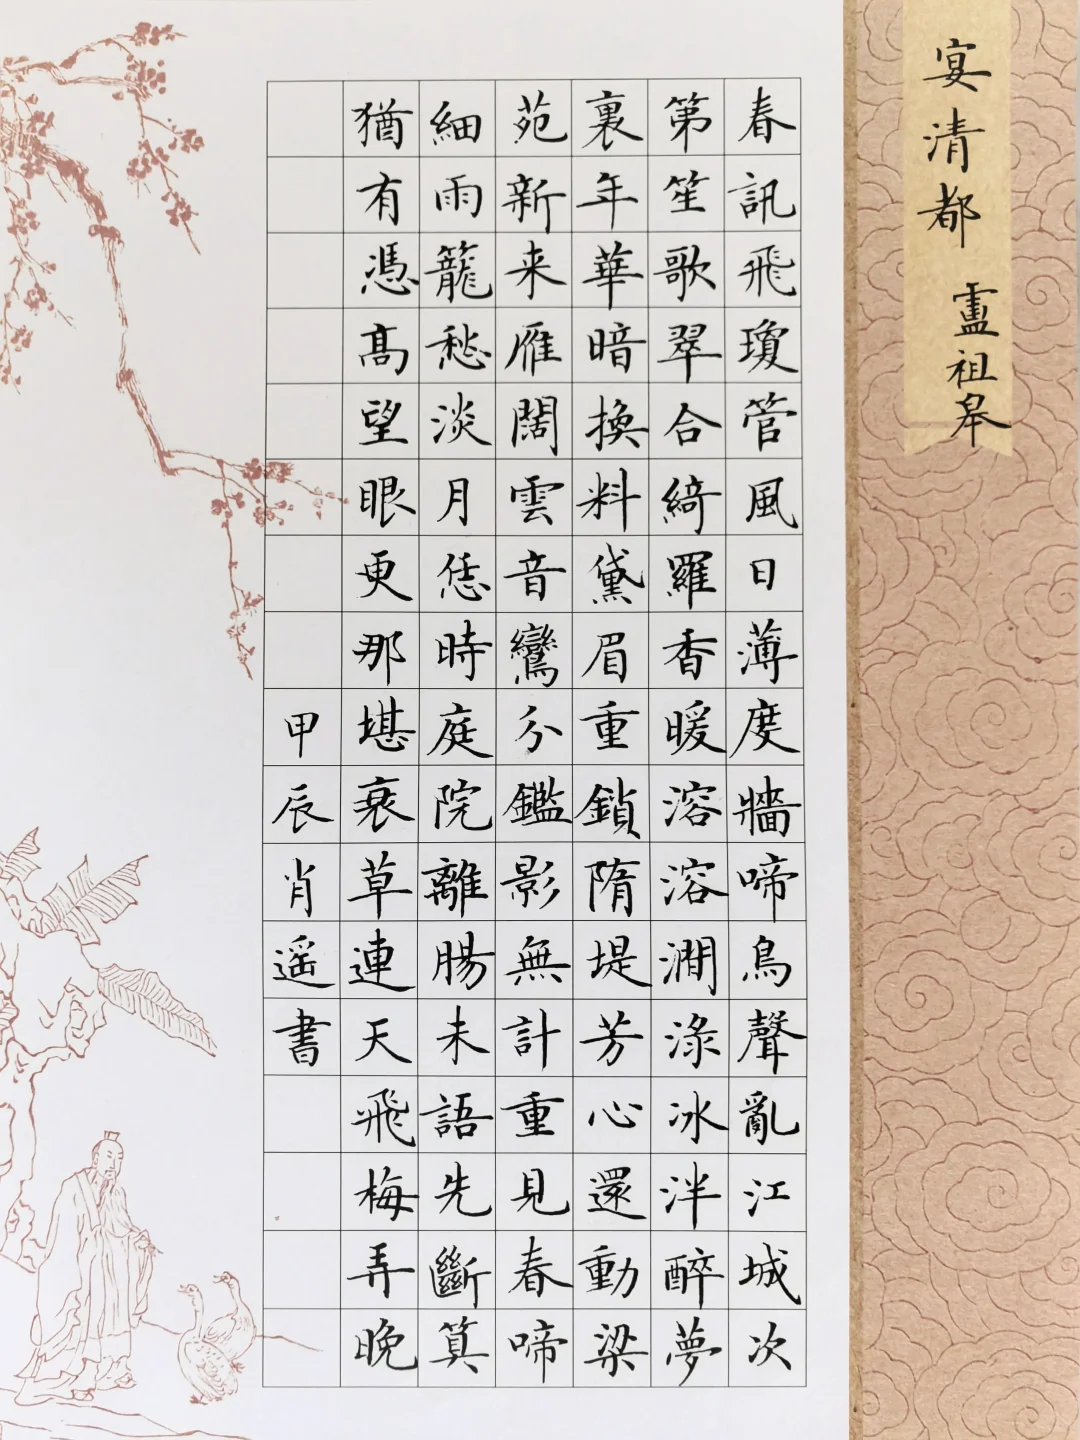 宴清都
盧祖皋
春訊飛瓊管風日薄度牆啼鳥聲亂江城次
第笙歌翠合綺羅香暖溶溶澗淥冰泮醉夢
裏年華暗換料黛眉重鎖隋堤芳心還動梁
苑新来雁闊雲音鸞分鑑影無計重見春啼
細雨籠愁淡月恁時庭院離腸未語先斷算
猶有憑高望眼更那堪衰草連天飛梅弄晚
甲辰肖遥書